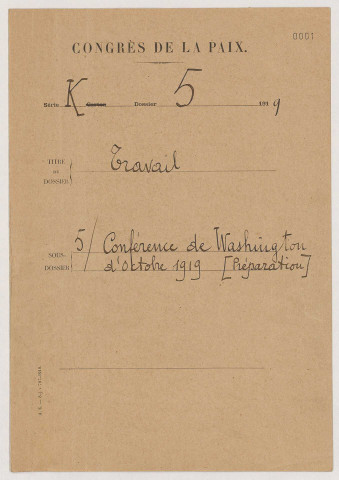 0001
CONGRÈS DE LA PAIX.
Série K Carton Dossier 5 1919
TITRE
DU
DOSSIER
Travail
SOUS-
DOSSIER
5/ Conférence de Washington
d'octobre 1919 [Préparation]